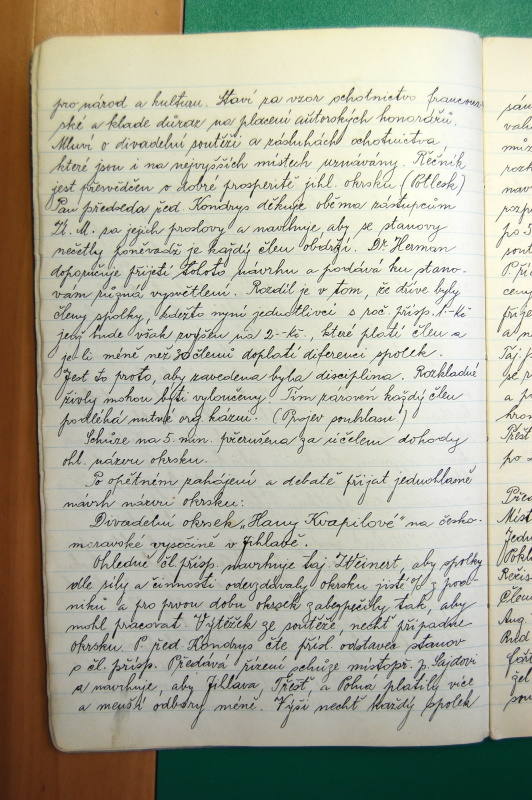 pro národ a kulturu. Staví za vzor ochotnictvo francouz-
ské a klade důraz na placení autorských honorářů.
Mluví o divadelní soutěži a zásluhách ochotnictva
které jsou i na nejvyšších místech uznávány. Řečník
jest přesvědčen o dobré prosperitě jihl. okrsku (Potlesk)
Pan předseda řed. Kondrys děkuje oběma zástupcům
Ú. M. za jejich proslovy a navrhuje aby se stanovy
nečetly poněvadž je každý člen obdrží. Dr. Heřman
doporučuje přijetí tohoto návrhu a podává ku stano-
vám různá vysvětlení. Rozdíl je v tom, že dříve byly
členy spolky, kdežto nyní jednotlivci s roč. přísp. 1.-Kč
jenž bude však zvýšen na 2.-Kč., které platí člen a
je-li méně než 30 členů doplatí diferenci spolek.
Jest to proto, aby zavedena byla disciplina. Rozkladné
živly mohou býti vyloučeny. Tím zároveň každý člen
podléhá nutné org. kázni. (Projev souhlasu)
Schůze na 5 min. přerušena za účelem dohody
ohl. názvu okrsku.
Po opětném zahájení a debatě přijat jednohlasně
návrh názvu okrsku:
Divadelní okrsek "Hany Kvapilové" na česko-
moravské vysočině v Jihlavě.
Ohledně čl. přísp. navrhuje taj. Weinert, aby spolky
dle síly a činnosti odevzdávaly okrsku jisté % z pod-
niků a pro prvou dobu okrsek zabezpečily tak, aby
mohl pracovat. Výtěžek ze soutěže, nechť připadne
okrsku. P. řed. Kondrys čte přísl. odstavec stanov
o čl. přísp. Předává řízení schůze místopř. p. Lajdovi
a navrhuje, aby Jihlava, Třešť, a Polná platily více
a menší odbory méně. Výši nechť každý spolek